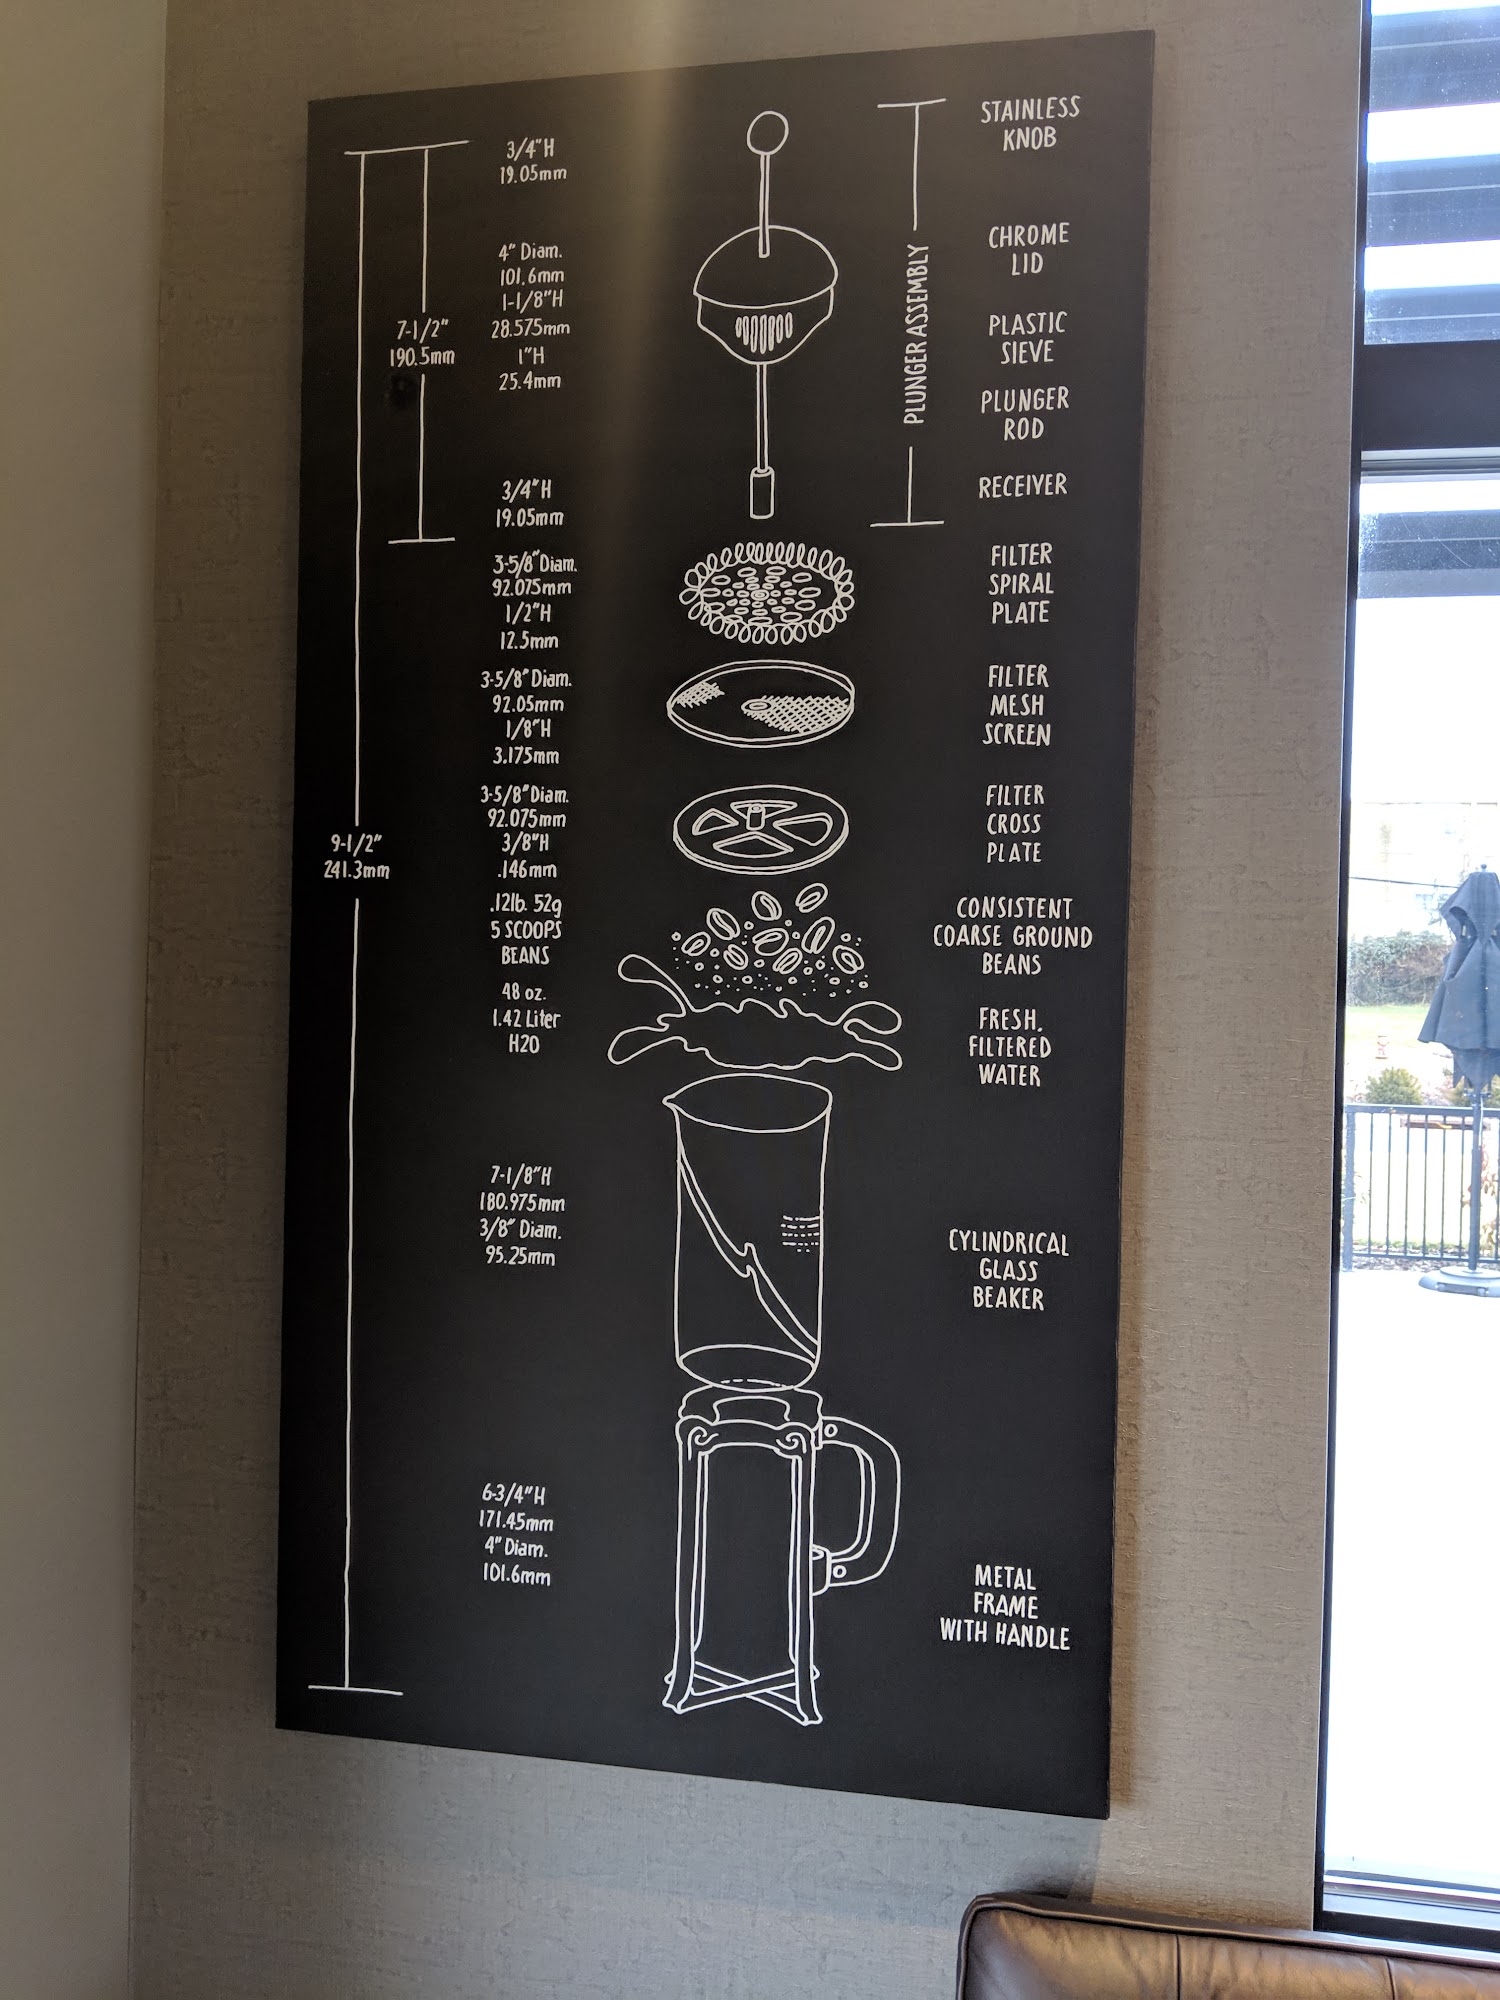 STAINLESS
KNOB
3/4"H
19.05mm
CHROME
LID
4" Diam.
101.6mm
1-1/8"H
28.575mm
1"H
25.4mm
PLASTIC
SIEVE
7-1/2"
190.5mm
PLUNGER ASSEMBLY
PLUNGER
ROD
RECEIVER
3/4"H
19.05mm
FILTER
SPIRAL
PLATE
3-5/8" Diam.
92.075mm
1/2"H
12.5mm
FILTER
MESH
SCREEN
3-5/8" Diam.
92.05mm
1/8"H
3.175mm
FILTER
CROSS
PLATE
3-5/8" Diam.
92.075mm
3/8"H
.146mm
9-1/2"
241.3mm
CONSISTENT
COARSE GROUND
BEANS
.12lb. 52g
5 SCOOPS
BEANS
48 oz.
1.42 Liter
H20
FRESH,
FILTERED
WATER
7-1/8"H
180.975mm
3/8" Diam.
95.25mm
CYLINDRICAL
GLASS
BEAKER
6-3/4"H
171.45mm
4" Diam.
101.6mm
METAL
FRAME
WITH HANDLE